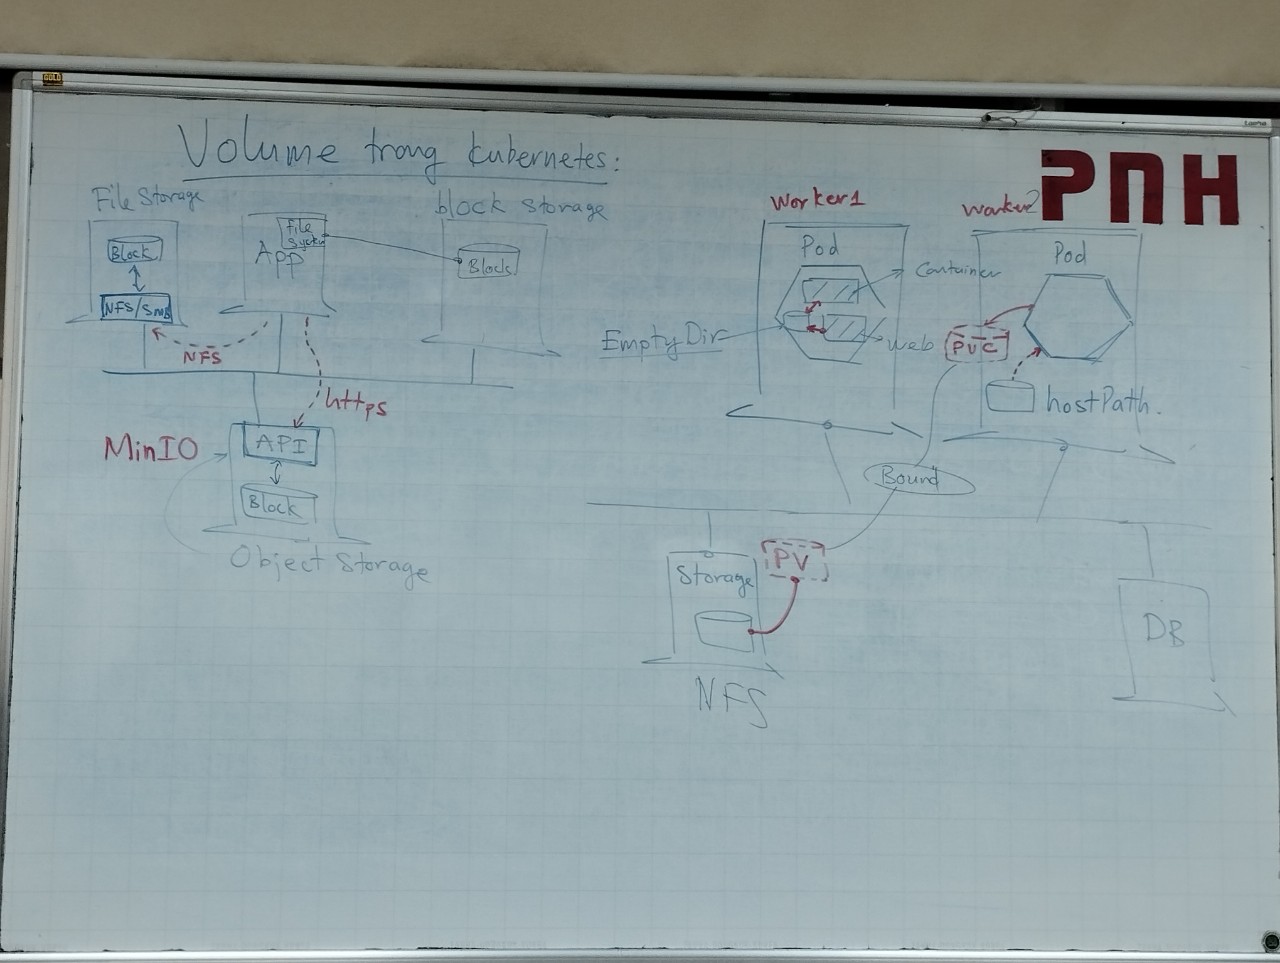 Volume trong kubernetes:
File Storage
Block
NFS/SMB
NFS
File
System
APP
block storage
Block
https
MinIO
API
Block
Object Storage
Worker1
Pod
Container
Web
EmptyDir
worker2
Pod
PVC
hostPath.
Bound
PV
Storage
NFS
DB
PNH
GOLD